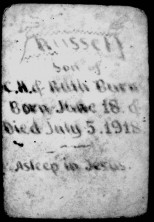 Russell
Son of
C.H. & Ruth Burn
Born June 18 &
Died July 5. 1918
Asleep in Jesus.